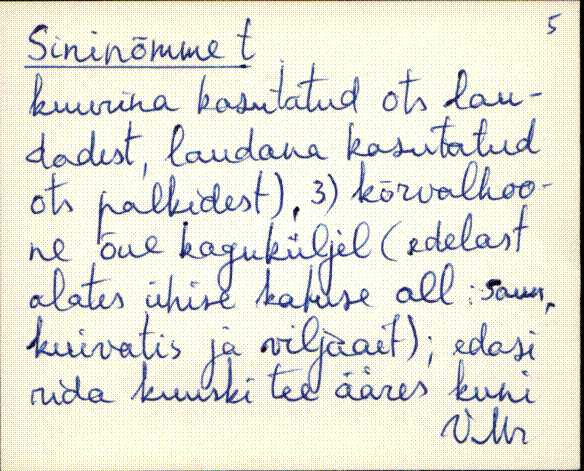 5
Sininõmme t
kuurina kasutatud ots lau-
dadest, laudana kasutatud
ots palkidest), 3) kõrvalhoo-
ne õue kaguküljel (edelast
alates ühise katuse all: saun,
kuivatis ja viljaait); edasi
rida kuuski tee ääres kuni
VMr